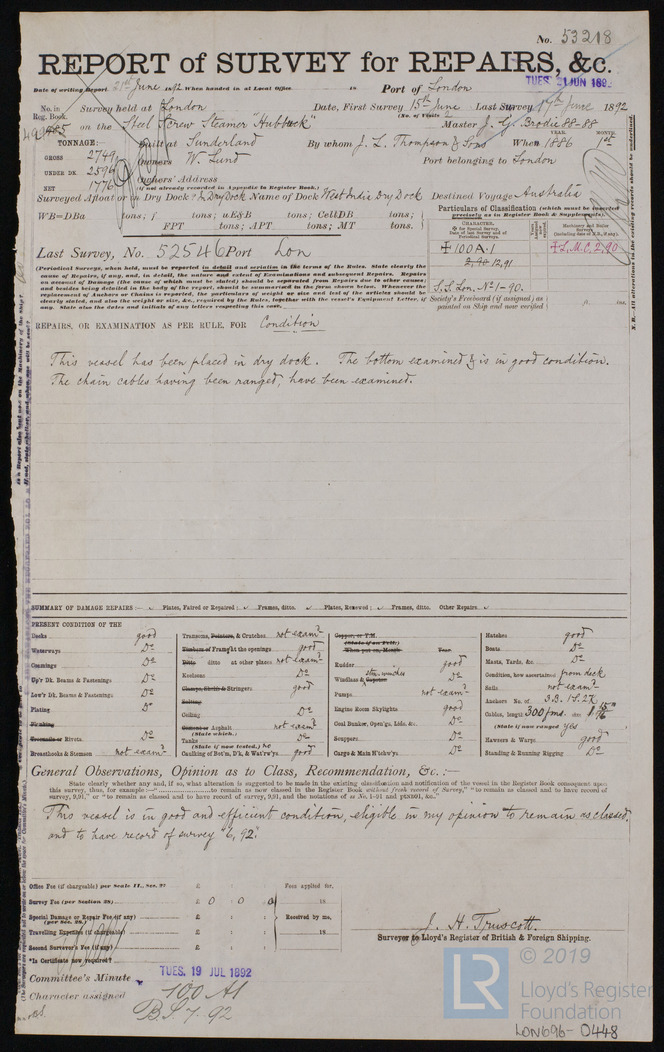 No. 53218
REPORT of SURVEY for REPAIRS, &c.
TUES. 21 JUN 189
Date of writing Report 21st June 1892 When handed in at Local Office 18 Port of London
No. in Reg. Book.
Survey held at London Date, First Survey 15th June Last Survey 17th June 1892
(No. of Visits
on the Steel Screw Steamer "Hubbuck" Master J. G. Brodie 88-88
TONNAGE:—
GROSS 2749
UNDER DK. 2596
NET 1776
Built at Sunderland By whom J. L. Thompson & Sons When 1886 1st
YEAR. MONTH.
Owners W. Lund Port belonging to London
Owners' Address
(if not already recorded in Appendix to Register Book.)
Surveyed Afloat or in Dry Dock? In Dry Dock Name of Dock West India Dry Dock Destined Voyage Australia
WB=DBa tons; f tons; aE&B tons; CellDB tons;
FPT tons; APT tons; MT tons.
Particulars of Classification (which must be inserted precisely as in Register Book & Supplements).
CHARACTER.
✠ 100 A.1
2,90 12,91
S.S. Lon. No 1-90.
✠ L.M.C. 2,90
Society's Freeboard (if assigned) as painted on Ship and now verified
ft. ins.
Last Survey, No. 52546 Port Lon
(Periodical Surveys, when held, must be reported in detail and seriatim in the terms of the Rules. State clearly the
cause of Repairs, if any, and, in detail, the nature and extent of Examinations and subsequent Repairs. Repairs
on account of Damage (the cause of which must be stated) should be separated from Repairs due to other causes;
and besides being detailed in the body of the report, should be summarised in the form shown below. Whenever the
replacement of Anchors or Chains is reported, the particulars of weight or size and test of the articles should be
clearly stated, and also the weight or size, &c., required by the Rules, together with the vessel's Equipment Letter, if
any. State also the dates and initials of any letters respecting this case.
REPAIRS, OR EXAMINATION AS PER RULE, FOR Condition
This vessel has been placed in dry dock. The bottom examined & is in good condition.
The chain cables having been ranged, have been examined.
SUMMARY OF DAMAGE REPAIRS:— Plates, Faired or Repaired; Frames, ditto. Plates, Renewed; Frames, ditto. Other Repairs.
PRESENT CONDITION OF THE
Decks good
Waterways Do
Coamings Do
Up'r Dk. Beams & Fastenings Do
Low'r Dk. Beams & Fastenings Do
Plating Do
Planking
Treenails or Rivets Do
Breasthooks & Stemson not examd
Transoms, Pointers, & Crutches not examd
Timbers of Frame at the openings good
Ditto ditto at other places not examd
Keelsons Do
Clamps, Shelfs & Stringers good
Salting
Ceiling Do
Cement or Asphalt not examd
(State which.)
Tanks Do
(State if now tested.) no
Caulking of Bot'm, D'k, & Wat'rw'ys good
Copper, or Y.M.
(State if on Felt.)
When put on, Month Year
Rudder good
Windlass & Capstan Do
Pumps not examd
Engine Room Skylights good
Coal Bunker, Open'gs, Lids, &c. Do
Scuppers Do
Cargo & Main H'tchw'ys Do
Hatches good
Boats Do
Masts, Yards, &c. Do
Condition, how ascertained from deck
Sails not examd
Anchors No. of 3.B. 1S. 2K
Cables, length 300 fms.
(State if now ranged) yes
Hawsers & Warps good
Standing & Running Rigging Do
General Observations, Opinion as to Class, Recommendation, &c.:—
State clearly whether any, and if so, what alteration is suggested to be made in the existing classification and notification of the vessel in the Register Book consequent upon
this survey, thus, for example:—" to remain as now classed in the Register Book without fresh record of Survey," "to remain as classed and to have record of
survey, 9,91," or "to remain as classed and to have record of survey, 9,91, and the notations of
This vessel is in good and efficient condition, eligible in my opinion to remain as classed,
and to have record of survey "6,92".
Office Fee (if chargeable) per Scale II., Sec. 27 £ : :
Survey Fee (per Section 28) £ 0 : 0 : 0
Special Damage or Repair Fee (if any) £ : :
(per Sec. 28.)
Travelling Expenses (if chargeable) £ : :
Second Surveyor's Fee (if any) £ : :
*Is Certificate now required?
Fees applied for,
18
Received by me,
18
J. H. Truscott.
Surveyor to Lloyd's Register of British & Foreign Shipping.
Committee's Minute TUES. 19 JUL 1892
Character assigned 100 A1
B.S. 7.92
© 2019
LR
Lloyd's Register
Foundation
LON696-0448